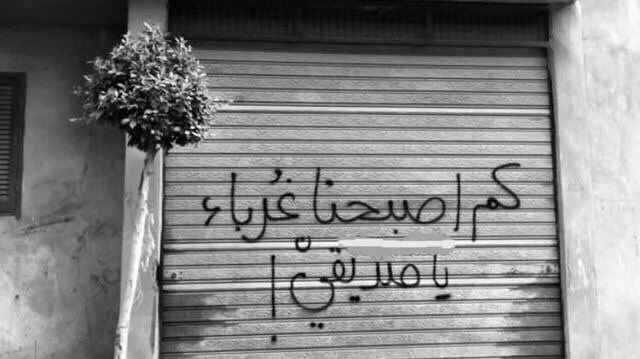 كم اصبحنا غُرباء
يا صديقيّ !